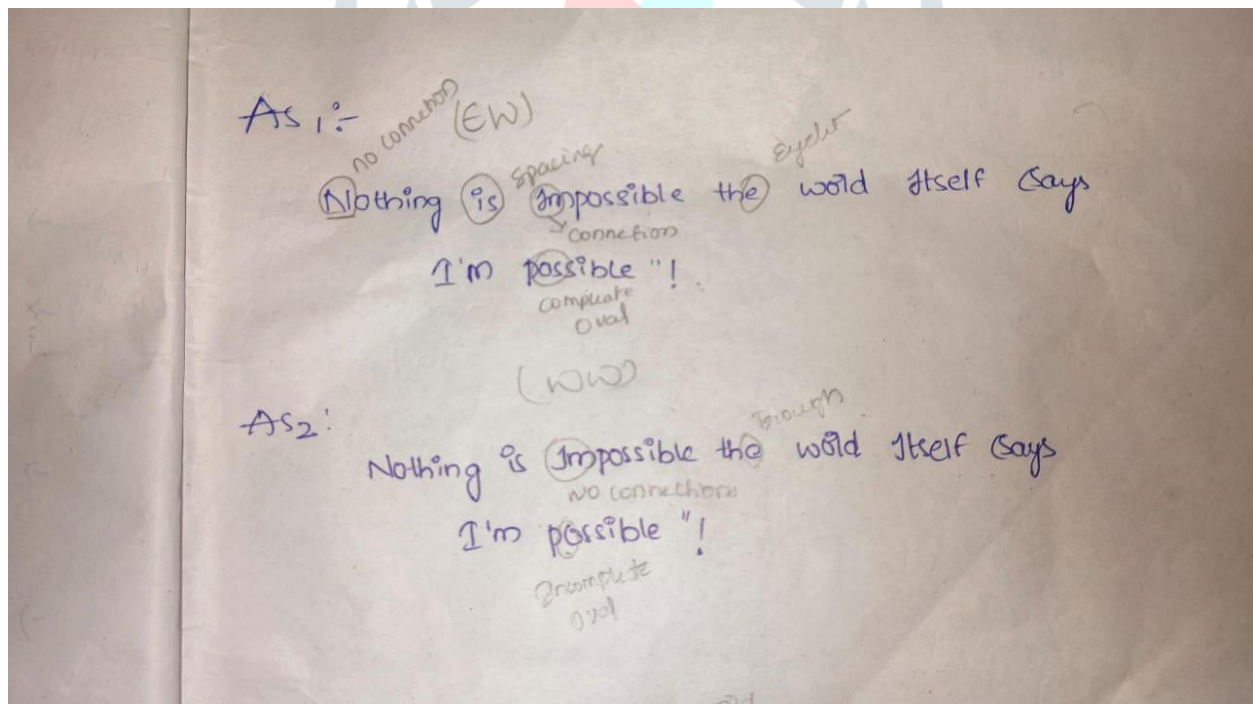 As 1:- no connetion (EW)
spacing Eyelet
Nothing is Impossible the world Itself Says
connetion
I'm possible "!
compleate
oval
(WW)
As2: Trough
Nothing is Impossible the world Itself Says
no connection
I'm possible "!
Incomplete
oval